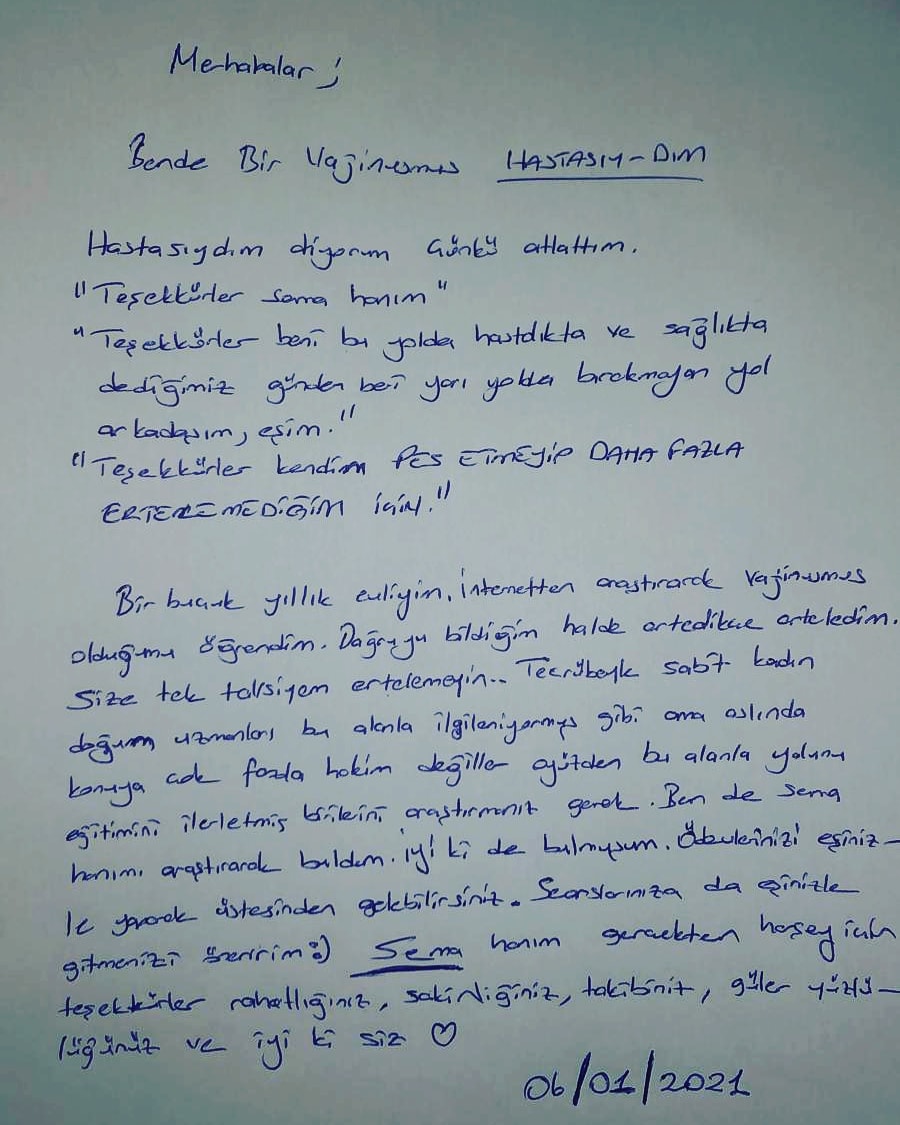 Merhabalar ;
Bende Bir Vajinusmus HASTASIY-DIM
Hastasıydım diyorum Çünkü atlattım.
"Teşekkürler sema hanım"
"Teşekkürler beni bu yolda hastalıkta ve sağlıkta
dediğimiz günden beri yarı yolda bırakmayan yol
arkadaşım, eşim."
"Teşekkürler kendim PES ETMEYİP DAHA FAZLA
ERTELEMEDİĞİM İÇİN."
Bir buçuk yıllık evliyim. İnternetten araştırarak vajinusmus
olduğumu öğrendim. Doğruyu bildiğim halde ertedikçe erteledim.
Size tek tavsiyem ertelemeyin.. Tecrübeyle sabit kadın
doğum uzmanları bu alanla ilgileniyormuş gibi ama aslında
konuya çok fazla hakim değiller o yüzden bu alanla yolunu
eğitimini ilerletmiş birikini araştırmanız gerek. Ben de Sema
hanımı araştırarak buldum. İyi ki de bulmuşum. Ödevlerinizi eşiniz-
le yaparak üstesinden gelebilirsiniz. Seanslarınıza da eşinizle
gitmenizi öneririm:) Sema hanım gerçekten herşey için
teşekkürler rahatlığınız, sakinliğiniz, takibiniz, güler yüzlü-
lüğünüz ve iyi ki siz ♡
06/01/2021